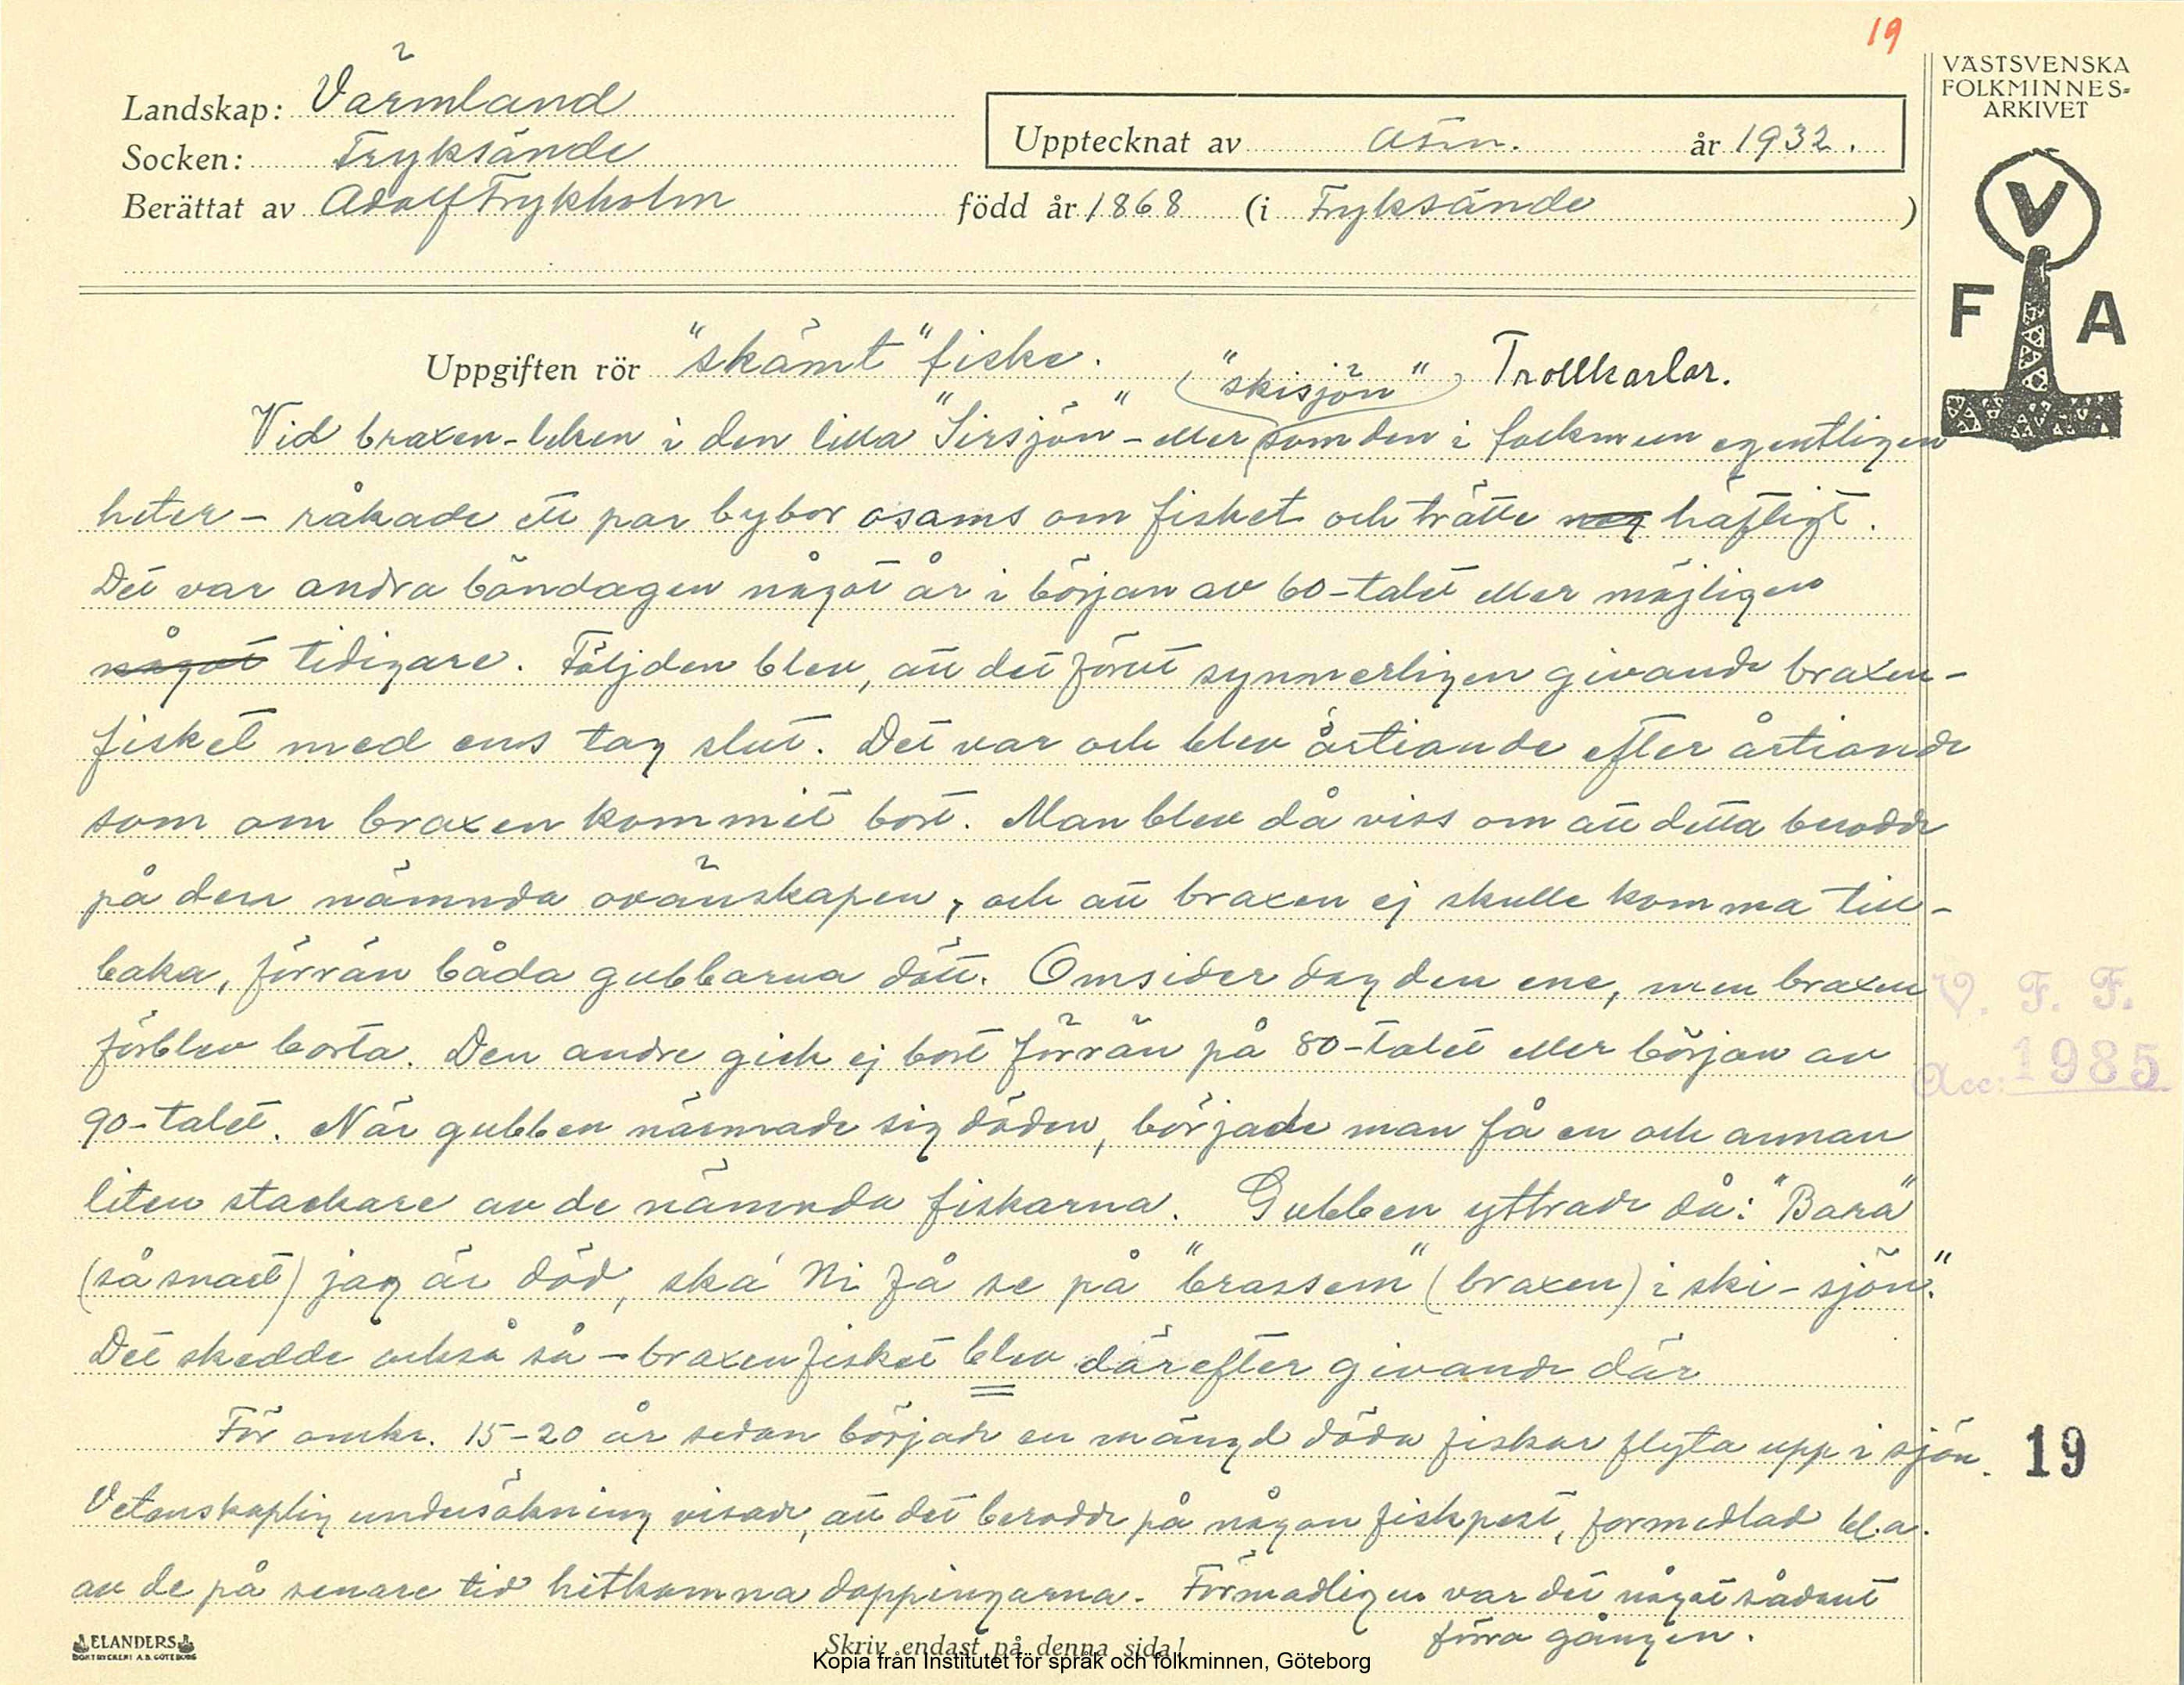 19
VÄSTSVENSKA
FOLKMINNES=
ARKIVET
Landskap: Värmland
Socken: Fryksände
Upptecknat av år 1932.
Berättat av Adolf Frykholm född år 1868 (i Fryksände )
V
F A
Uppgiften rör "skämt" fiske. ("skisjön") Trollkarlar.
Vid braxen-leken i den lilla "Sirsjön" - eller som den i folkmun egentligen
heter - råkade ett par bybor osams om fisket och trätte häftigt.
Det var andra böndagen något år i början av 60-talet eller möjligen
något tidigare. Följden blev, att det förut synnerligen givande braxen-
fisket med ens tog slut. Det var och blev årtionde efter årtionde
som om braxen kommit bort. Man blev då viss om att detta berodde
på den nämnda ovänskapen, och att braxen ej skulle komma till-
baka, förrän båda gubbarna dött. Omsider dog den ene, men braxen
förblev borta. Den andre gick ej bort förrän på 80-talet eller början av
90-talet. När gubben närmade sig döden, började man få en och annan
liten stackare av de nämnda fiskarna. Gubben yttrade då: "Bara"
(så snart) jag är död, ska' Ni få se på "brassem" (braxen) i ski-sjön."
Det skedde också så - braxenfisket blev därefter givande där
För omkr. 15-20 år sedan började en mängd döda fiskar flyta upp i sjön.
Vetenskaplig undersökning visade, att det berodde på någon fiskpest, förmedlad bl.a.
av de på senare tid hitkomna doppingarna. Förmodligen var det något sådant
förra gången.
V. F. F.
Acc: 1985
19
ELANDERS
BOKTRYCKERI A.B. GÖTEBORG
Skriv endast på denna sida!
Kopia från Institutet för språk och folkminnen, Göteborg